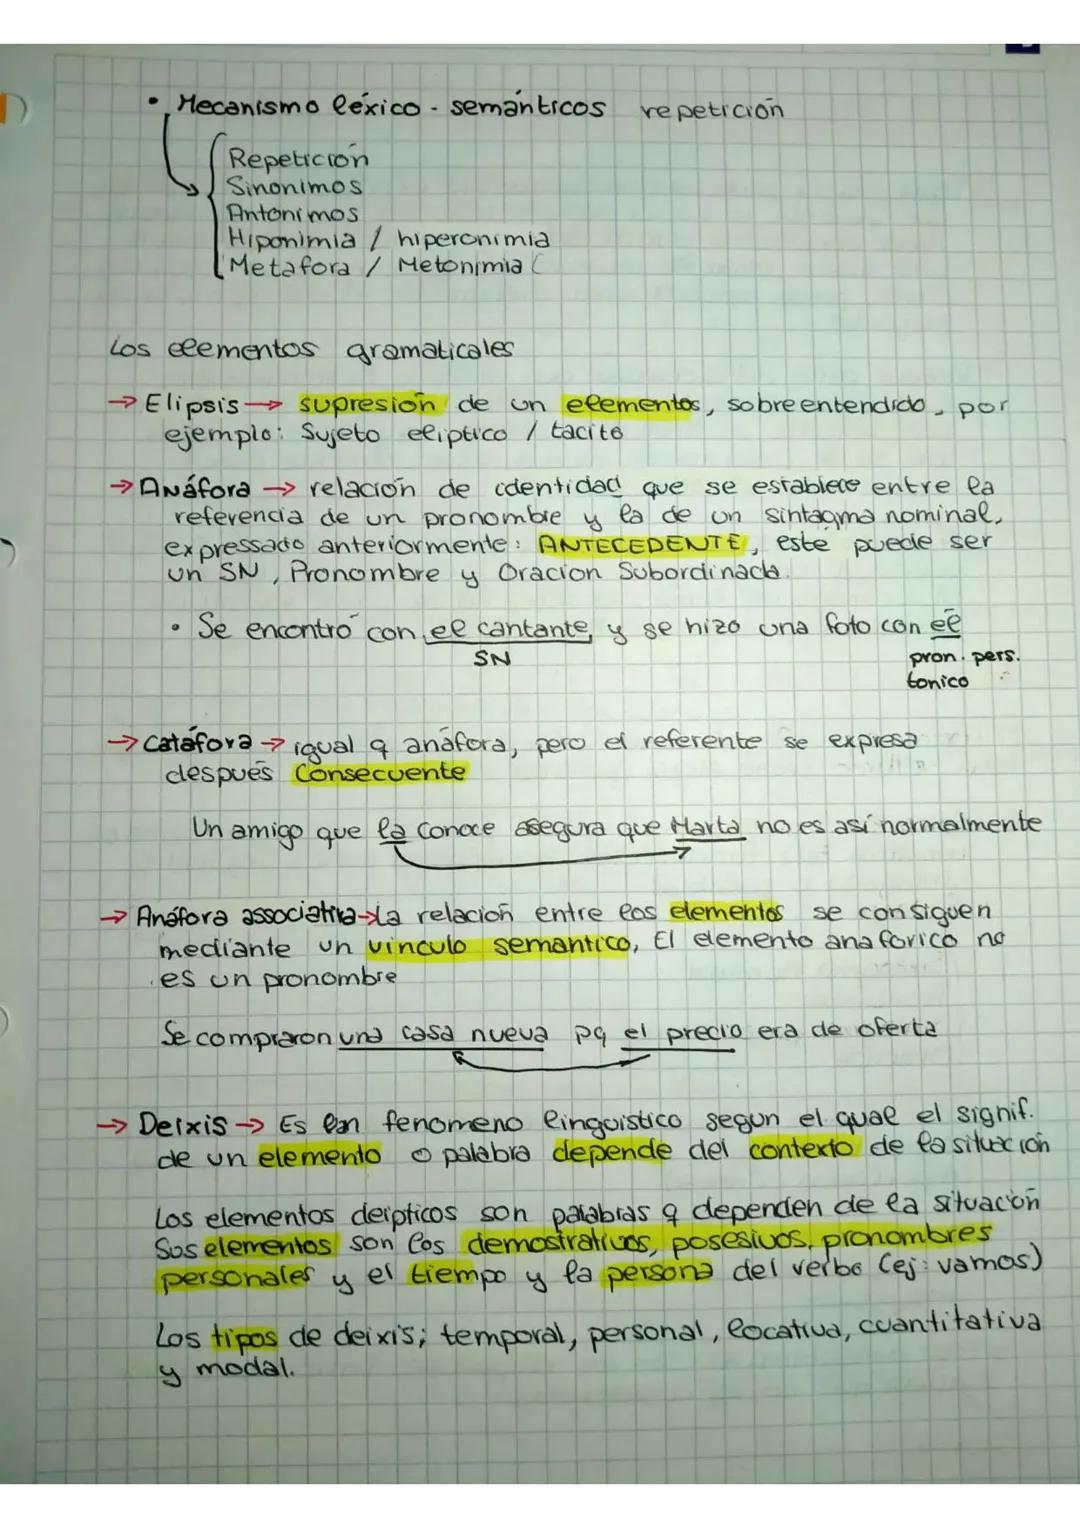 • Mecanismo léxico - semánticos repetición
Repetición
Sinonimos
Antonimos
Hiponimia / hiperonimia
Metafora / Metonimia (
Los elementos gramaticales
→ Elipsis → supresión de un elementos, sobreentendido, por
ejemplo: Sujeto elíptico / tacito
→ Anáfora → relación de identidad que se establece entre la
referencia de un pronombre y la de un sintagma nominal,
expressado anteriormente: ANTECEDENTE, este puede ser
un SN, Pronombre y Oracion Subordinada.
• Se encontró con el cantante y se hizo una foto con él
SN pron. pers.
tonico
→ Catáfora → igual q anáfora, pero el referente se expresa
después Consecuente
Un amigo que la conoce asegura que Marta no es así normalmente
→ Anáfora associativa → La relación entre los elementos se consiguen
mediante un vinculo semantico, El elemento anaforico no
es un pronombre
Se compraron una casa nueva pq el precio era de oferta
→ Deixis → Es un fenomeno lingüistico segun el qual el signif.
de un elemento o palabra depende del contexto de la situación
Los elementos deipticos son palabras q dependen de la situación
Sus elementos son los demostrativos, posesivos, pronombres
personales y el tiempo y la persona del verbo (ej: vamos)
Los tipos de deixis; temporal, personal, locativa, cuantitativa
y modal.